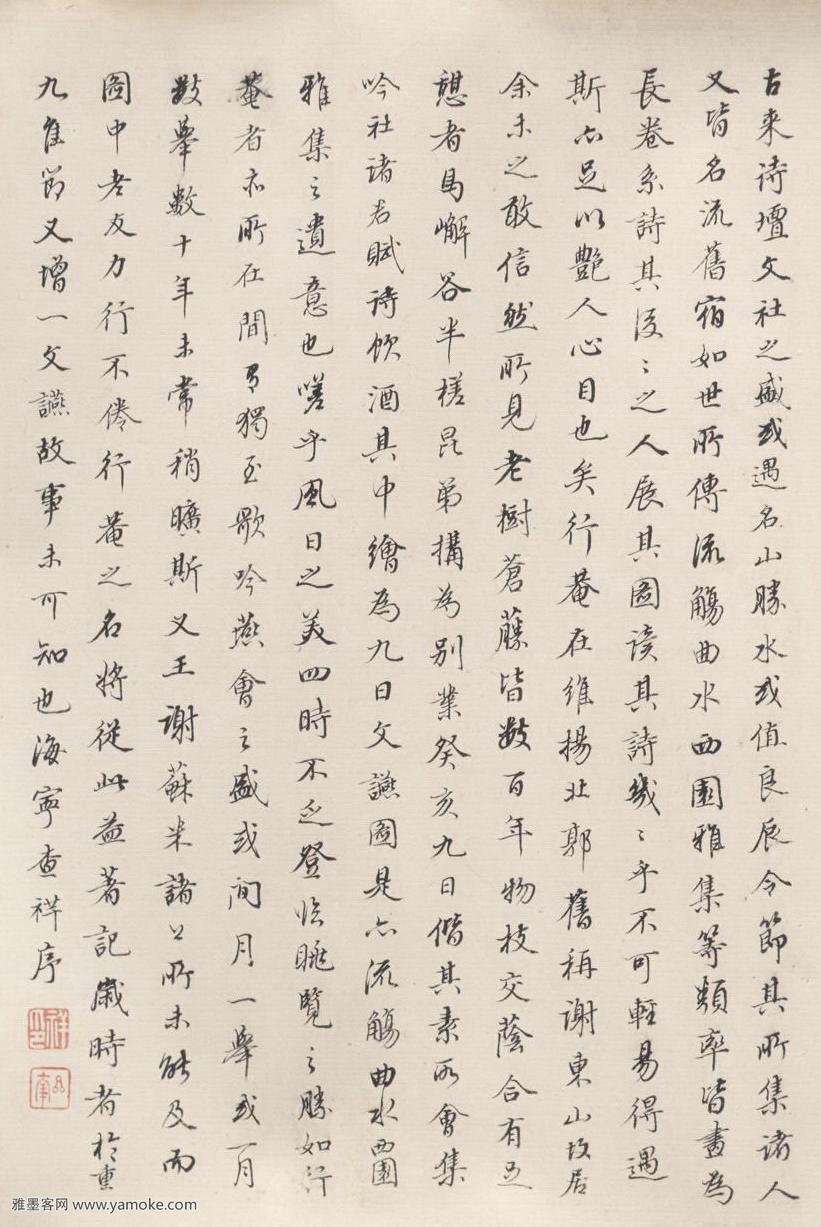 古来诗壇文社之盛或遇名山勝水或值良辰令節其所集诸人
又皆名流舊宿如世所傳流觴曲水西園雅集等類率皆畫為
長卷系詩其後〻之人展其圖读其詩幾〻乎不可輕易得遇
斯亦足以艷人心目也矣行菴在維揚北郭舊称謝東山故居
余未之敢信然所見老樹蒼藤皆數百年物枝交蔭合有足
憩者馬嶰谷半槎昆弟搆為別業癸亥九日偕其素所會集
吟社诸君賦诗飲酒其中繪為九日文讌圖是亦流觴曲水西園
雅集之遺意也嗟乎風日之美四時不乏登临眺覽之勝如行
菴者亦所在間有獨至歌吟燕會之盛或间月一舉或一月
數舉數十年未常稍曠斯又王謝蘇米諸公所未能及而
圖中老友力行不倦行菴之名將從此益著記歲時者於重
九佳節又增一文讌故事未可知也海寧查祥序
祥印
雅墨客网 www.yamoke.com